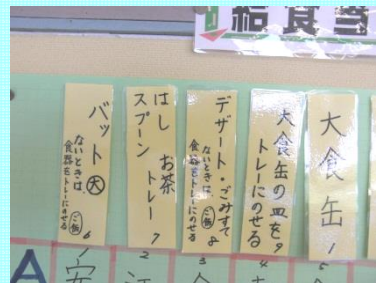 給食当
大食缶
1
大食缶の皿を9
トレーにのせる
デザート・ごみすて
ないときは、ご飯 8
食器をトレーにのせる
はし お茶
スプーン トレー
7
バット大
ないときは ご飯
食器をトレーにのせる 6
A
1
2
3
4
5
安